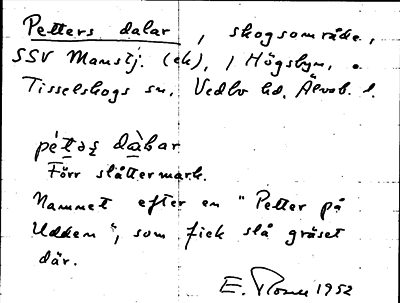 Petters dalar, skogsområde,
SSV Manstj. (ek), i Högsbyn,
Tisselskogs sn, Vedbo hd, Älvsb. l.
Förr slåttermark.
Namnet efter en "Petter på
Udden", som fick slå gräset
där.
E. Rosell 1952